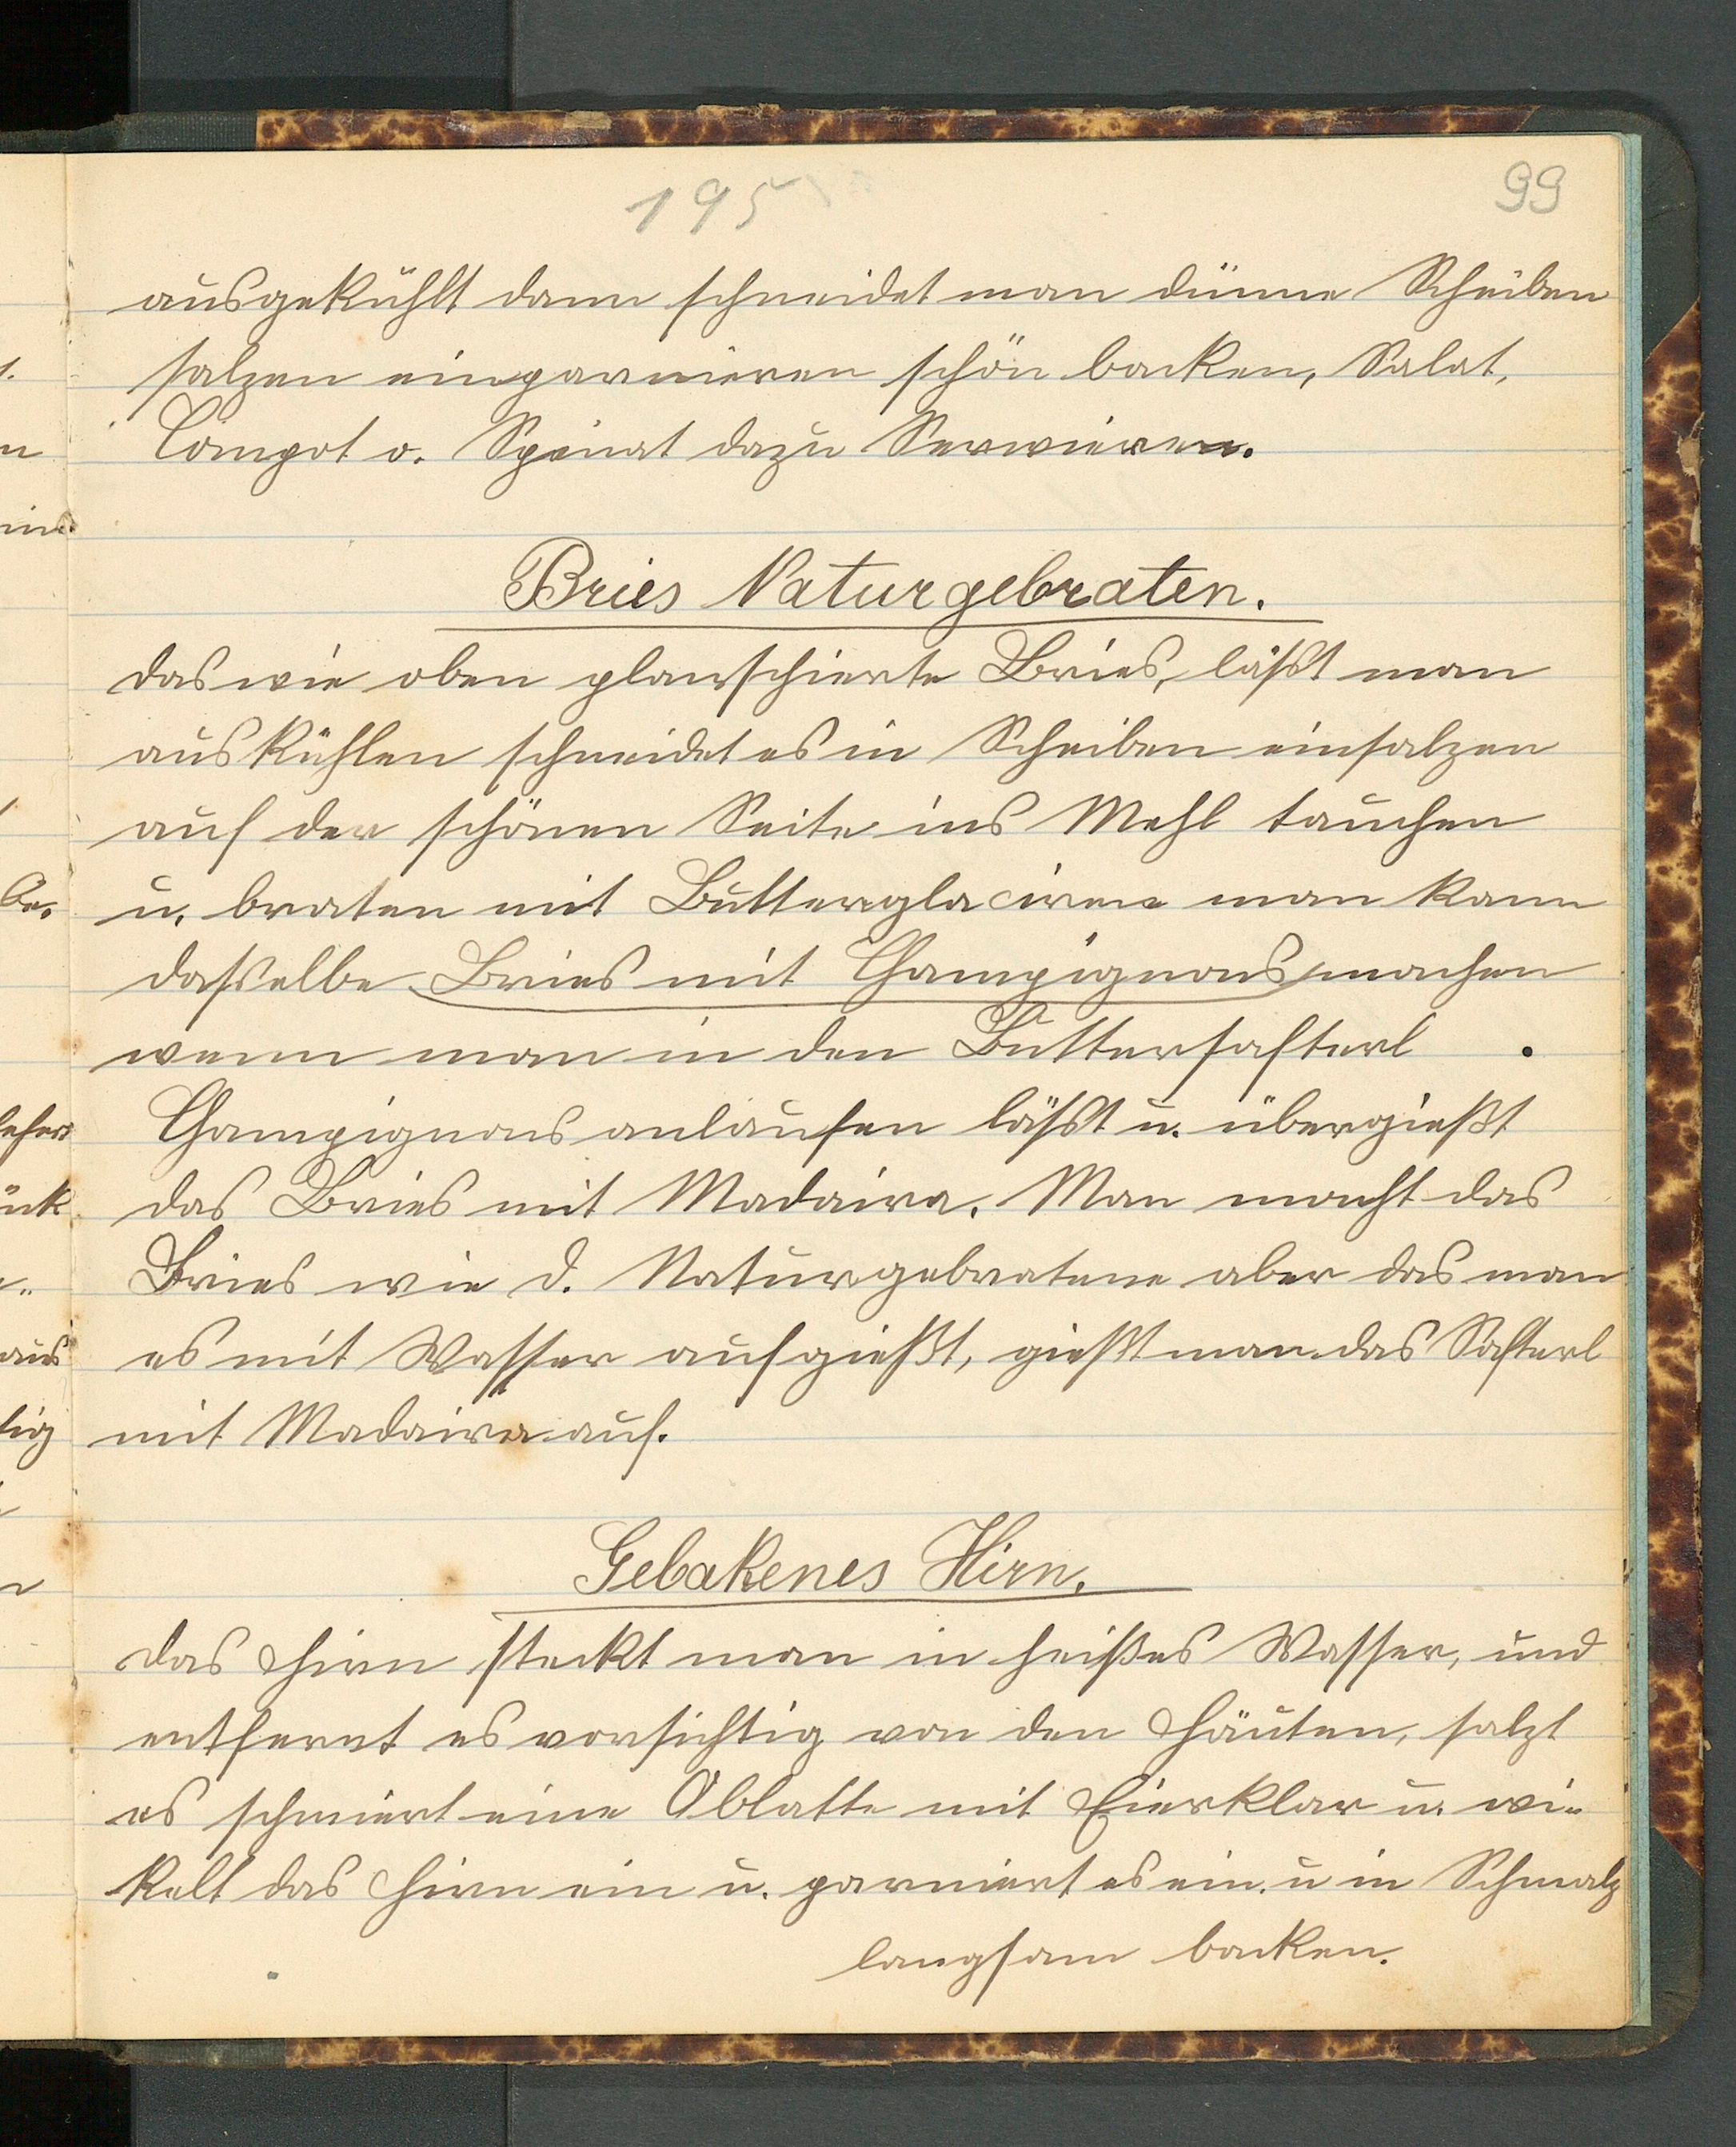 195
99
ausgekühlt dann schneidet man dünne Scheiben
salzen einparnieren schön backen, Salat,
Compot o. Spinat dazu Servieren.
Bries Natur gebraten.
das wie oben planschierte Bries, läßt man
auskühlen schneidet es in Scheiben einsalzen
auf der schönen Seite ins Mehl tauchen
u. braten mit Butterglacirene man kann
dasselbe Bries mit Champignons machen
wenn man in den Buttersafterl
Champignons anlaufen läßt u. übergießt
das Bries mit Madaira. Man macht das
Bries wie d. Naturgebratene aber das man
es mit Wasser aufgießt, gießt man das Safterl
mit Madaira auf.
Gebakenes Hirn.
das Hirn steckt man in heißes Wasser, und
entfernt es vorsichtig von den Häuten, salzt
es schmiert eine Oblatte mit Eierklar u. wi-
kelt das Hirn ein u. parniert es ein. u in Schmalz
langsam backen.